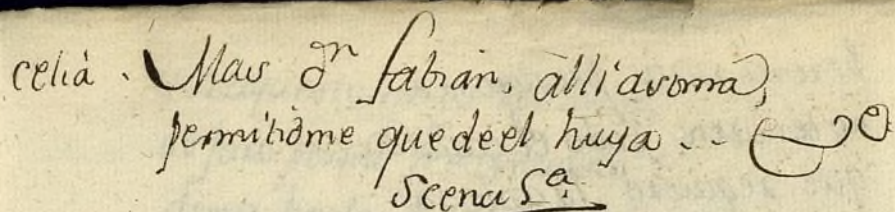 celia. Mas dn fabian, alli asoma,
permitidme que de el huya.. Ve
Scena 5a.